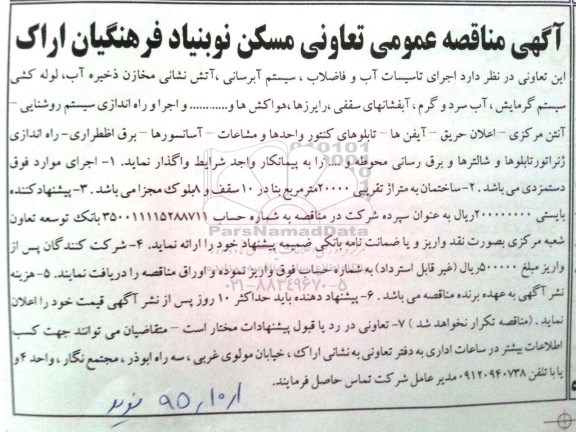 آگهی مناقصه عمومی تعاونی مسکن نوبنیاد فرهنگیان اراک
این تعاونی در نظر دارد اجرای تاسیسات آب و فاضلاب ، سیستم آبرسانی ،آتش نشانی مخازن ذخیره آب، لوله کشی
سیستم گرمایش ، آب سرد و گرم ، آبفشانهای سقفی ،رایزرها ،هواکش ها و............ و اجرا و راه اندازی سیستم روشنایی –
آنتن مرکزی – اعلان حریق – آیفن ها – تابلوهای کنتور واحدها و مشاعات – آسانسورها – برق اظطراری- راه اندازی
ژنراتورتابلوها و شالترها و برق رسانی محوطه و ..... را به پیمانکار واجد شرایط واگذار نماید. ۱- اجرای موارد فوق
دستمزدی می باشد . ۲-ساختمان به متراژ تقریبی ۲۰۰۰۰مترمربع بنا در ۱۰سقف و ۸بلوک مجزا می باشد . ۳- پیشنهادکننده
بایستی ۲۰۰۰۰۰۰۰۰ریال به عنوان سپرده شرکت در مناقصه به شماره حساب ۳۵۰۰۱۱۱۱۵۲۸۸۷۱۱ بانک توسعه تعاون
شعبه مرکزی بصورت نقد واریز و یا ضمانت نامه بانکی ضمیمه پیشنهاد خود را ارائه نماید. ۴- شرکت کنندگان پس از
واریز مبلغ ۵۰۰۰۰۰ریال (غیر قابل استرداد) به شماره حساب فوق واریز نموده و اوراق مناقصه را دریافت نمایند. ۵- هزینه
نشر آگهی به عهده برنده مناقصه می باشد . ۶- پیشنهاد دهنده باید حداکثر ۱۰ روز پس از نشر آگهی قیمت خود را اعلان
نماید . (مناقصه تکرار نخواهد شد ) ۷- تعاونی در رد یا قبول پیشنهادات مختار است – متقاضیان می توانند جهت کسب
اطلاعات بیشتر در ساعات اداری به دفتر تعاونی به نشانی اراک ، خیابان مولوی غربی ، سه راه ابوذر ، مجتمع نگار ، واحد ۴و
یا با تلفن ۰۹۱۲۰۹۴۰۷۳۸ مدیر عامل شرکت تماس حاصل فرمایند.
ParsNamadData
۰۲۱-۸۸۳۴۹۶۷۰-۵